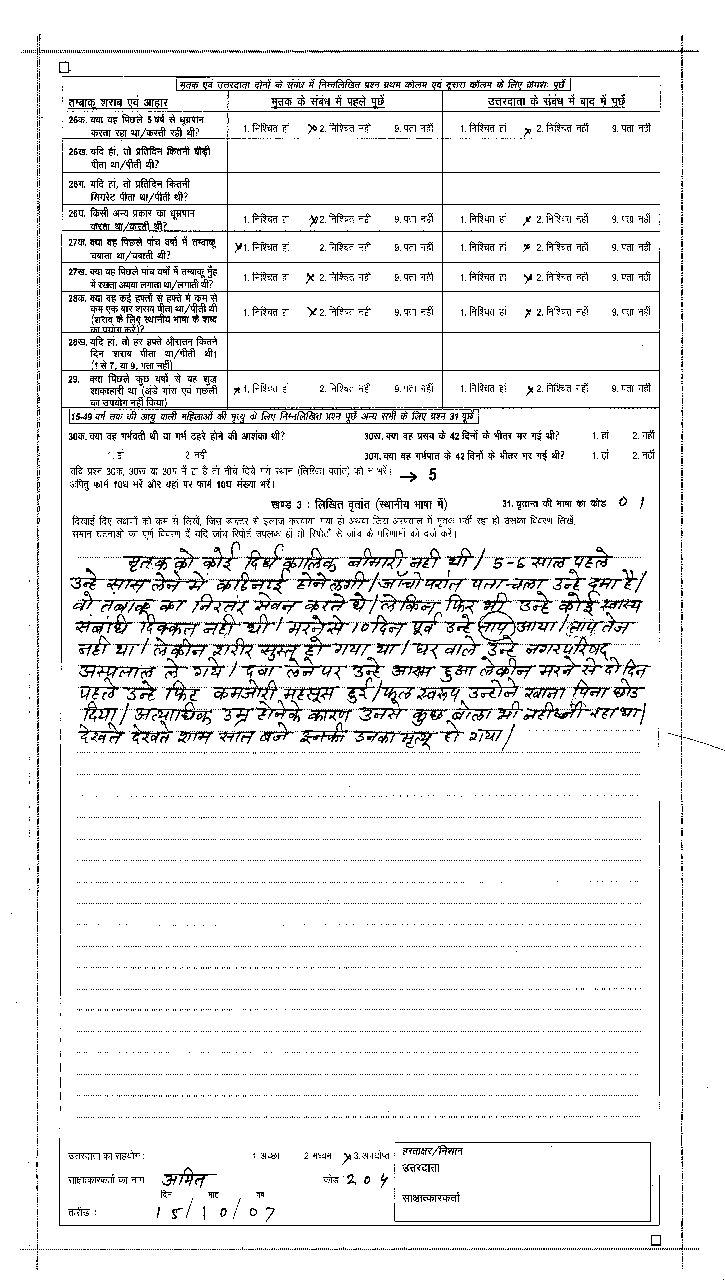 मृतक एवं उत्तरदाता दोनों के संबंध में निम्नलिखित प्रश्न प्रथम कोलम एवं दूसरा कॉलम के लिए क्रमशः पूछें
तम्बाकू शराब एवं आहार मृतक के संबंध में पहले पूछें उत्तरदाता के संबंध में बाद में पूछें
26क. क्या वह पिछले 5 वर्ष से धूम्रपान
करता रहा था/करती रही थी? 1. निश्चित हां 2. निश्चित नहीं 9. पता नहीं 1. निश्चित हां 2. निश्चित नहीं 9. पता नहीं
26ख. यदि हां, तो प्रतिदिन कितनी बीड़ी
पीता था/पीती थी?
26ग. यदि हां, तो प्रतिदिन कितनी
सिगरेट पीता था/पीती थी?
26घ. किसी अन्य प्रकार का धूम्रपान
करता था/करती थी? 1. निश्चित हां 2. निश्चित नहीं 9. पता नहीं 1. निश्चित हां 2. निश्चित नहीं 9. पता नहीं
27क. क्या वह पिछले पांच वर्षों में तम्बाकू
चबाता था/चबाती थी? 1. निश्चित हां 2. निश्चित नहीं 9. पता नहीं 1. निश्चित हां 2. निश्चित नहीं 9. पता नहीं
27ख. क्या वह पिछले पांच वर्षों में तम्बाकू मुँह
में रखता अथवा लगाता था/लगाती थी? 1. निश्चित हां 2. निश्चित नहीं 9. पता नहीं 1. निश्चित हां 2. निश्चित नहीं 9. पता नहीं
28क. क्या वह कई हफ्तों से हफ्ते में कम से
कम एक बार शराब पीता था/पीती थी
(शराब के लिए स्थानीय भाषा के शब्द
का प्रयोग करें)? 1. निश्चित हां 2. निश्चित नहीं 9. पता नहीं 1. निश्चित हां 2. निश्चित नहीं 9. पता नहीं
28ख. यदि हां, तो हर हफ्ते औसतन कितने
दिन शराब पीता था/पीती थी।
(1 से 7, या 9, पता नहीं)
29. क्या पिछले कुछ वर्षों से वह शुद्ध
शाकाहारी था (अंडे मांस एवं मछली
का उपयोग नहीं किया) 1. निश्चित हां 2. निश्चित नहीं 9. पता नहीं 1. निश्चित हां 2. निश्चित नहीं 9. पता नहीं
15-49 वर्ष तक की आयु वाली महिलाओं की मृत्यु के लिए निम्नलिखित प्रश्न पूछें अन्य सभी के लिए प्रश्न 31 पूछें
30क. क्या वह गर्भवती थी या गर्भ ठहरे होने की आशंका थी? 30ख. क्या वह प्रसव के 42 दिनों के भीतर मर गई थी? 1. हां 2. नहीं
1. हां 2 नहीं 30ग. क्या वह गर्भपात के 42 दिनों के भीतर मर गई थी? 1. हां 2. नहीं
यदि प्रश्न 30क, 30ख या 30ग में हां है तो नीचे दिये गये स्थान (लिखित वृतांत) को न भरें।
अपितु फार्म 10घ भरें और यहां पर फार्म 10घ संख्या भरें। → 5
खण्ड 3 : लिखित वृतांत (स्थानीय भाषा में) 31. वृतान्त की भाषा का कोड 0 1
मृतक को कोई दिर्घ कालिक बीमारी नही थी। 5-6 साल पहले
उन्हे सास लेने मे कठिनाई होने लगी। जाँचोपरांत पता चला उन्हे दमा है।
वो तबाकू का निरतर सेवन करते थे। लेकिन फिर भी उन्हे कोई स्वास्थ
सबंधि दिक्कत नही थी। मरने से 10 दिन पूर्व उन्हे ताप आया। ताप तेज
नही था। लेकीन शरीर सुस्त हो गया था। घर वाले उन्हे नगरपरिषद
अस्पताल ले गये। दवा लेने पर उन्हे आराम हुआ लेकीन मरने से दो दिन
पहले उन्हे फिर कमजोरी महसूस हुई। फूल स्वरूप उन्होने खाना पिना छोड
दिया। अत्याधिक उम्र होने के कारण उनसे कुछ बोला भी नही जा रहा था।
देखते देखते शाम सात बजे उनका मृत्यू हो गया।
उत्तरदाता का सहयोग : 1 अच्छा 2 मध्यम 3. अपर्याप्त हस्ताक्षर/निशान
उत्तरदाता
साक्षात्कारकर्ता का नाम अमित कोड 204
दिन माह वर्ष साक्षात्कारकर्ता
तारीख : 15/10/07